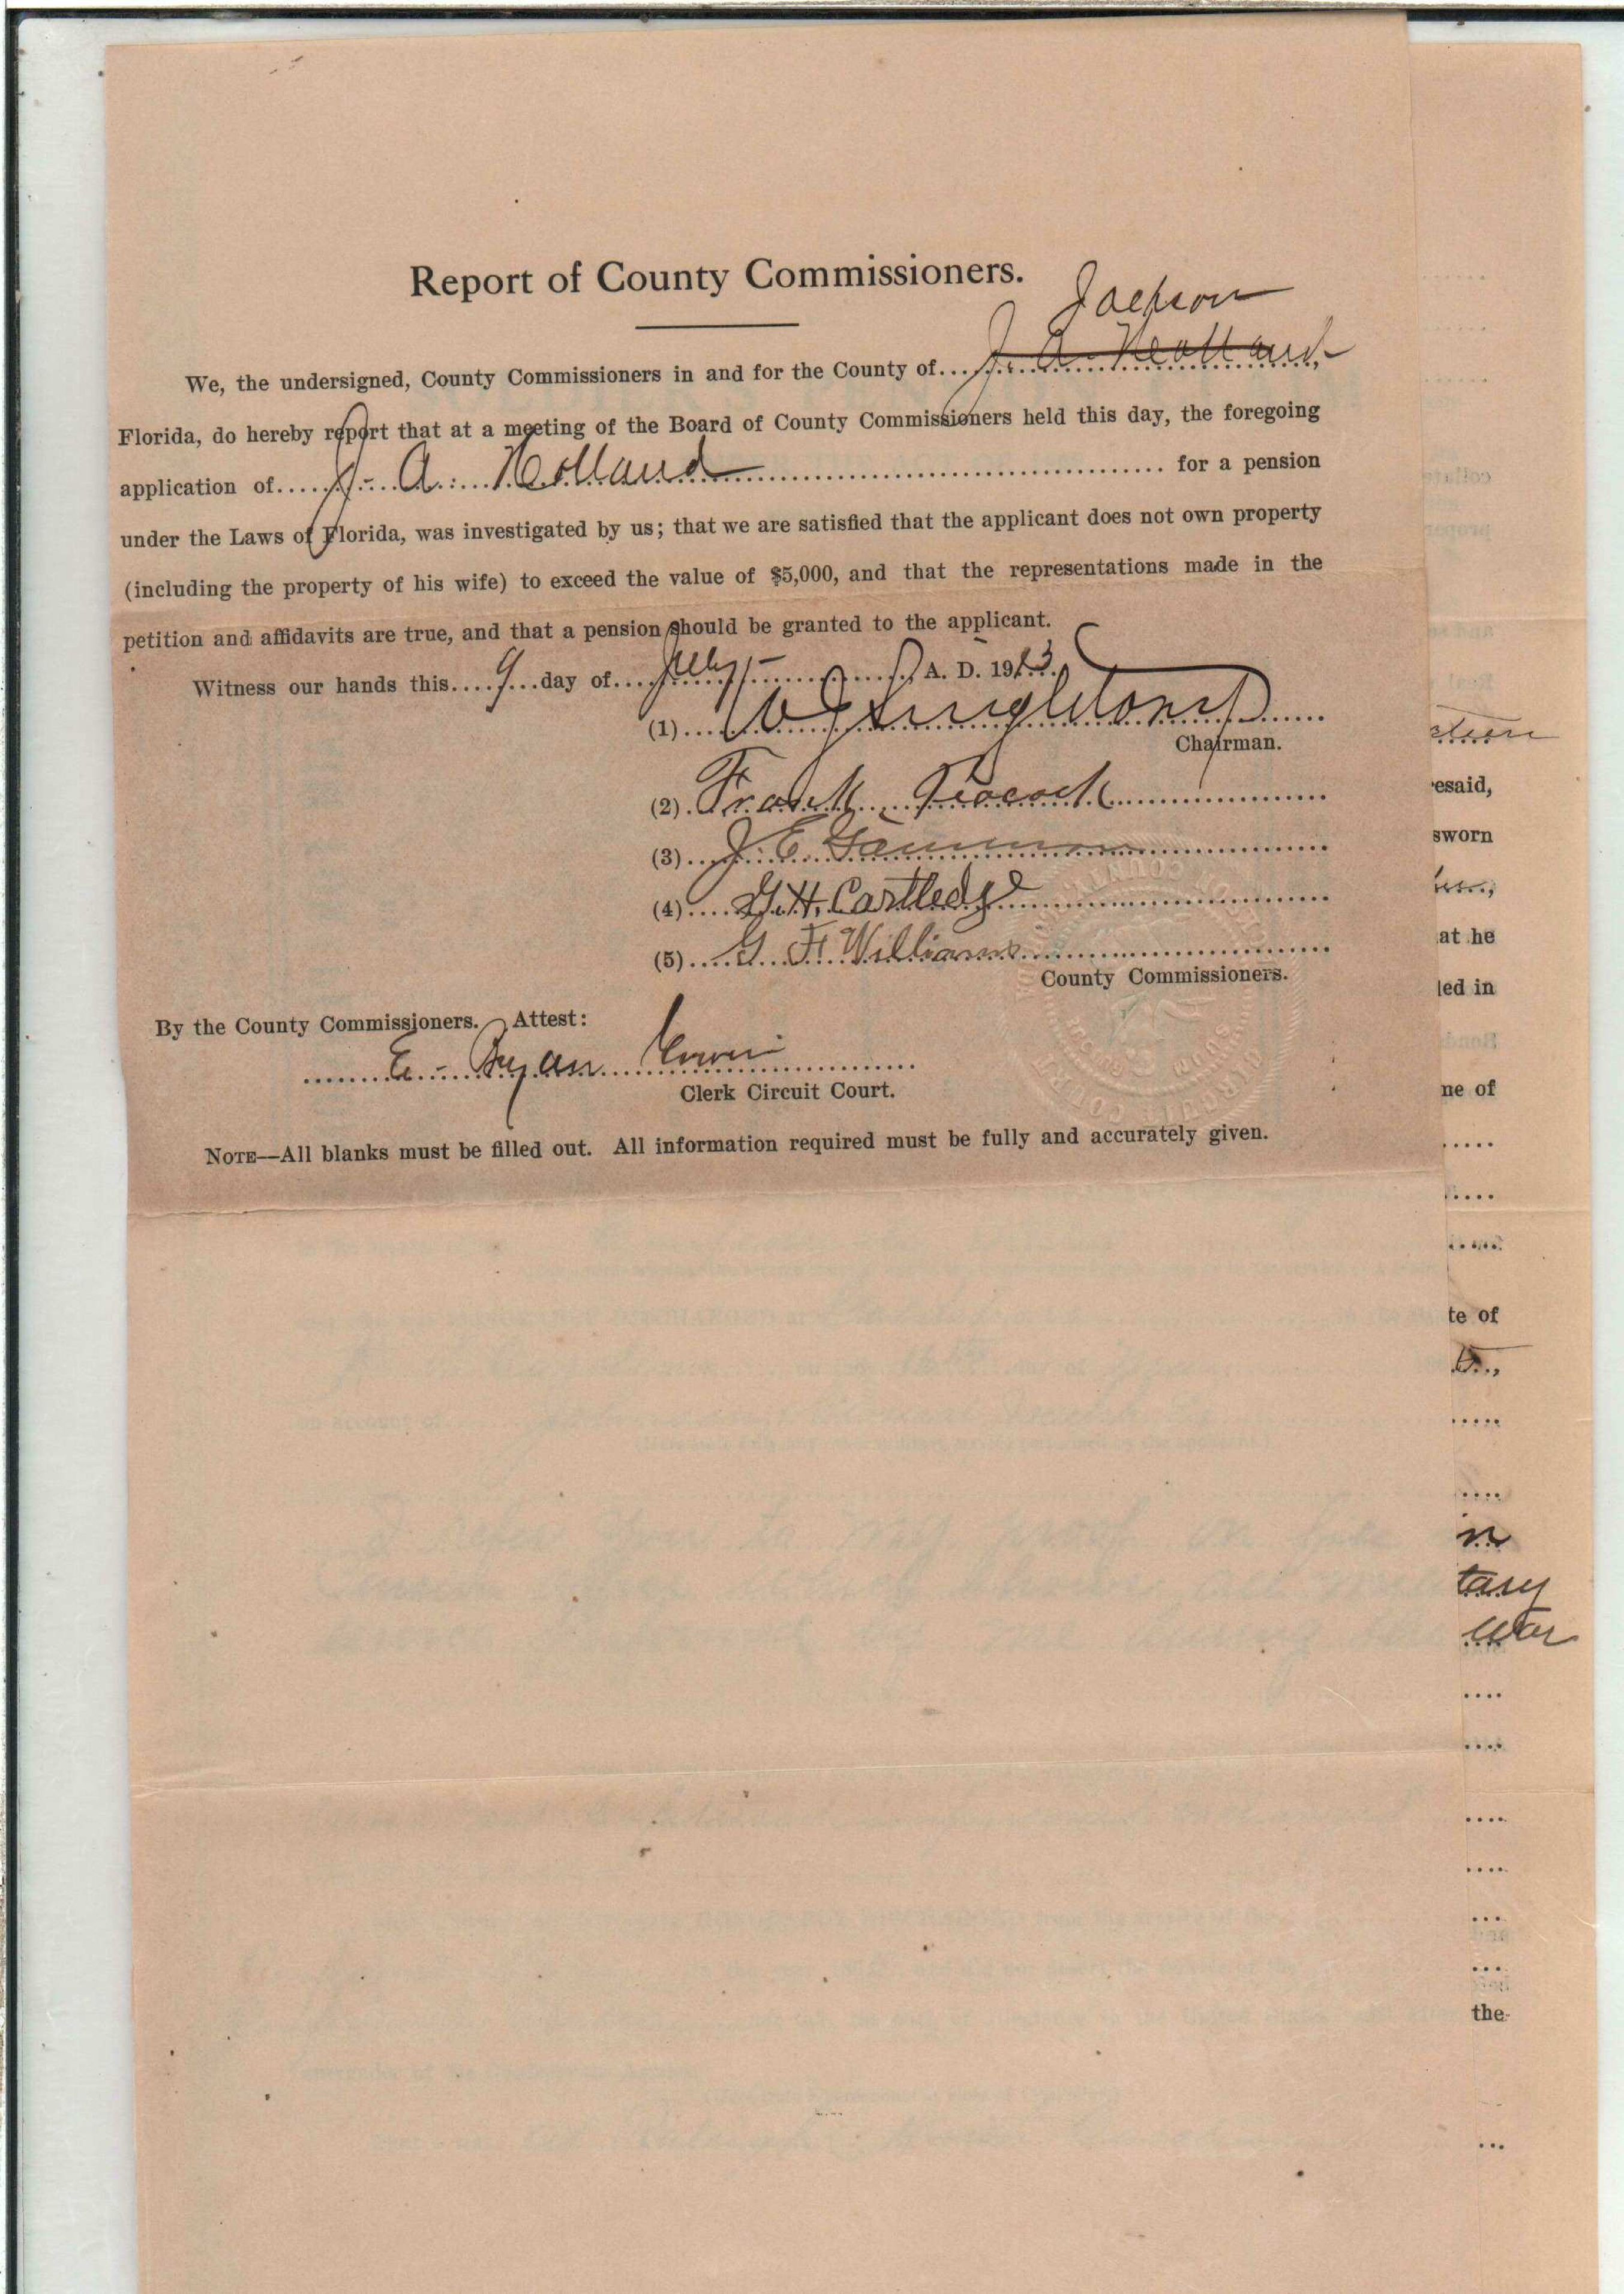 Report of County Commissioners.
Jackson
We, the undersigned, County Commissioners in and for the County of.... J. A. Holland,
Florida, do hereby report that at a meeting of the Board of County Commissioners held this day, the foregoing
application of..... J. A. Holland ..... for a pension
under the Laws of Florida, was investigated by us; that we are satisfied that the applicant does not own property
(including the property of his wife) to exceed the value of $5,000, and that the representations made in the
petition and affidavits are true, and that a pension should be granted to the applicant.
Witness our hands this.... 9 ...day of.... July ..... A. D. 1913.
(1).... Singletary
Chairman.
(2). Frank Peacock
(3).... J. E. Gammon
(4).... G. H. Cartledge
(5).... G. F. Williams
County Commissioners.
By the County Commissioners. Attest:
Clerk Circuit Court.
NOTE—All blanks must be filled out. All information required must be fully and accurately given.
esaid,
sworn
at he
led in
ne of
te of
in
tary
war
the